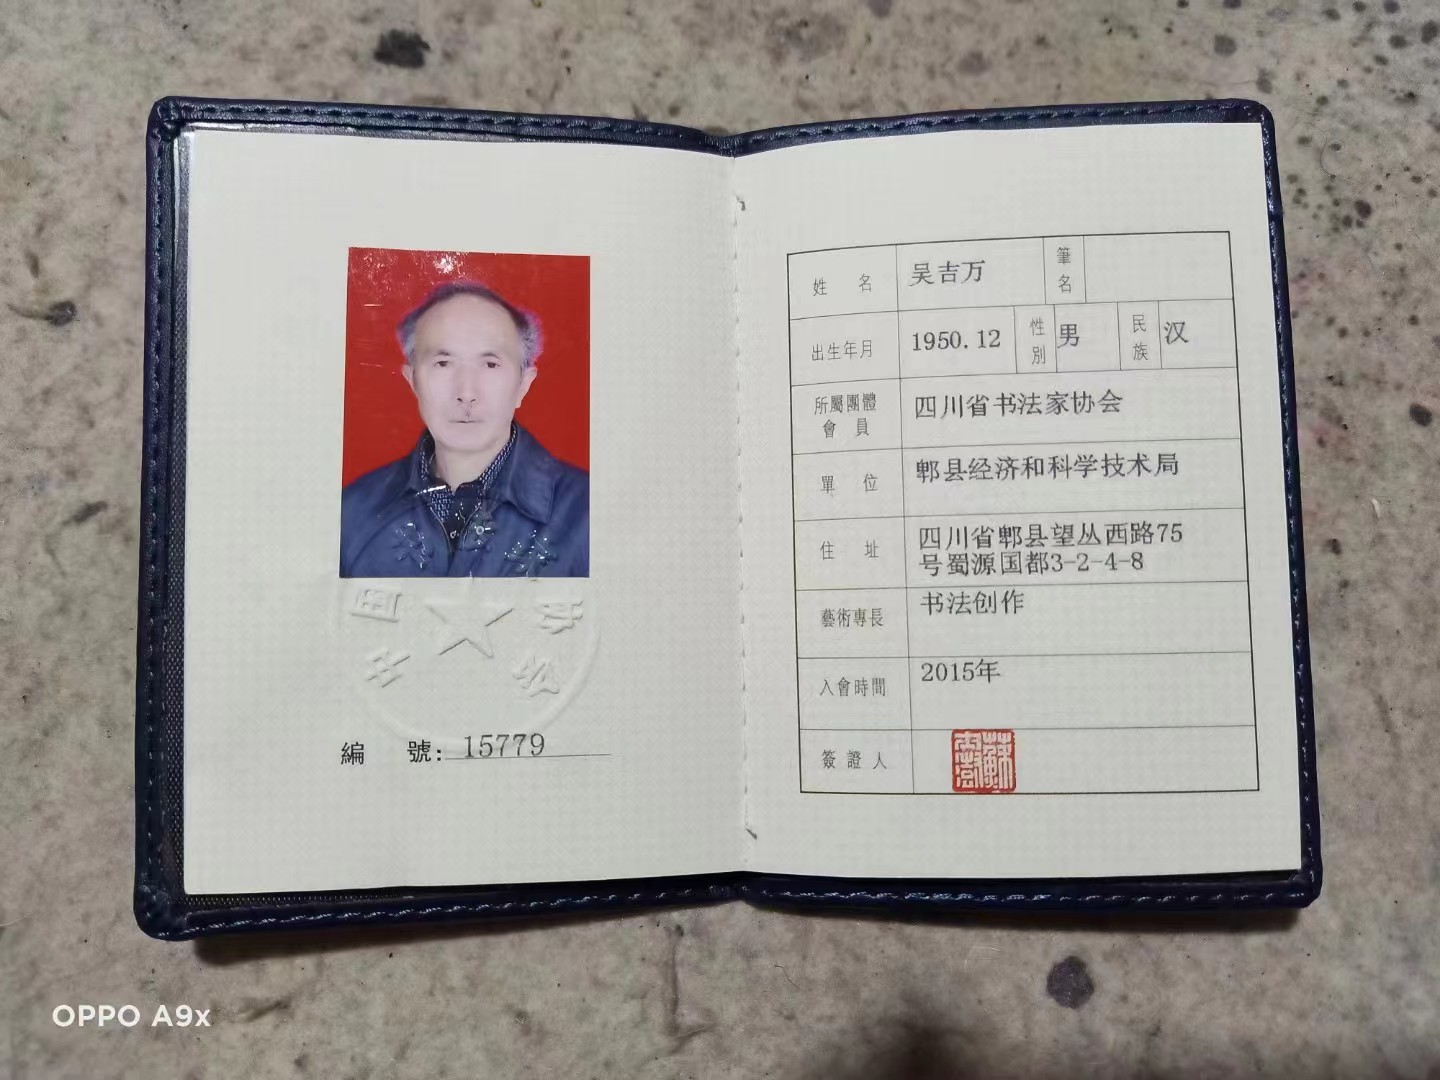 編 號: 15779
姓 名 吴吉万 筆名
出生年月 1950.12 性別 男 民族 汉
所屬團體會員 四川省书法家协会
單 位 郫县经济和科学技术局
住 址 四川省郫县望丛西路75
号蜀源国都3-2-4-8
藝術專長 书法创作
入會時間 2015年
簽證人
OPPO A9x